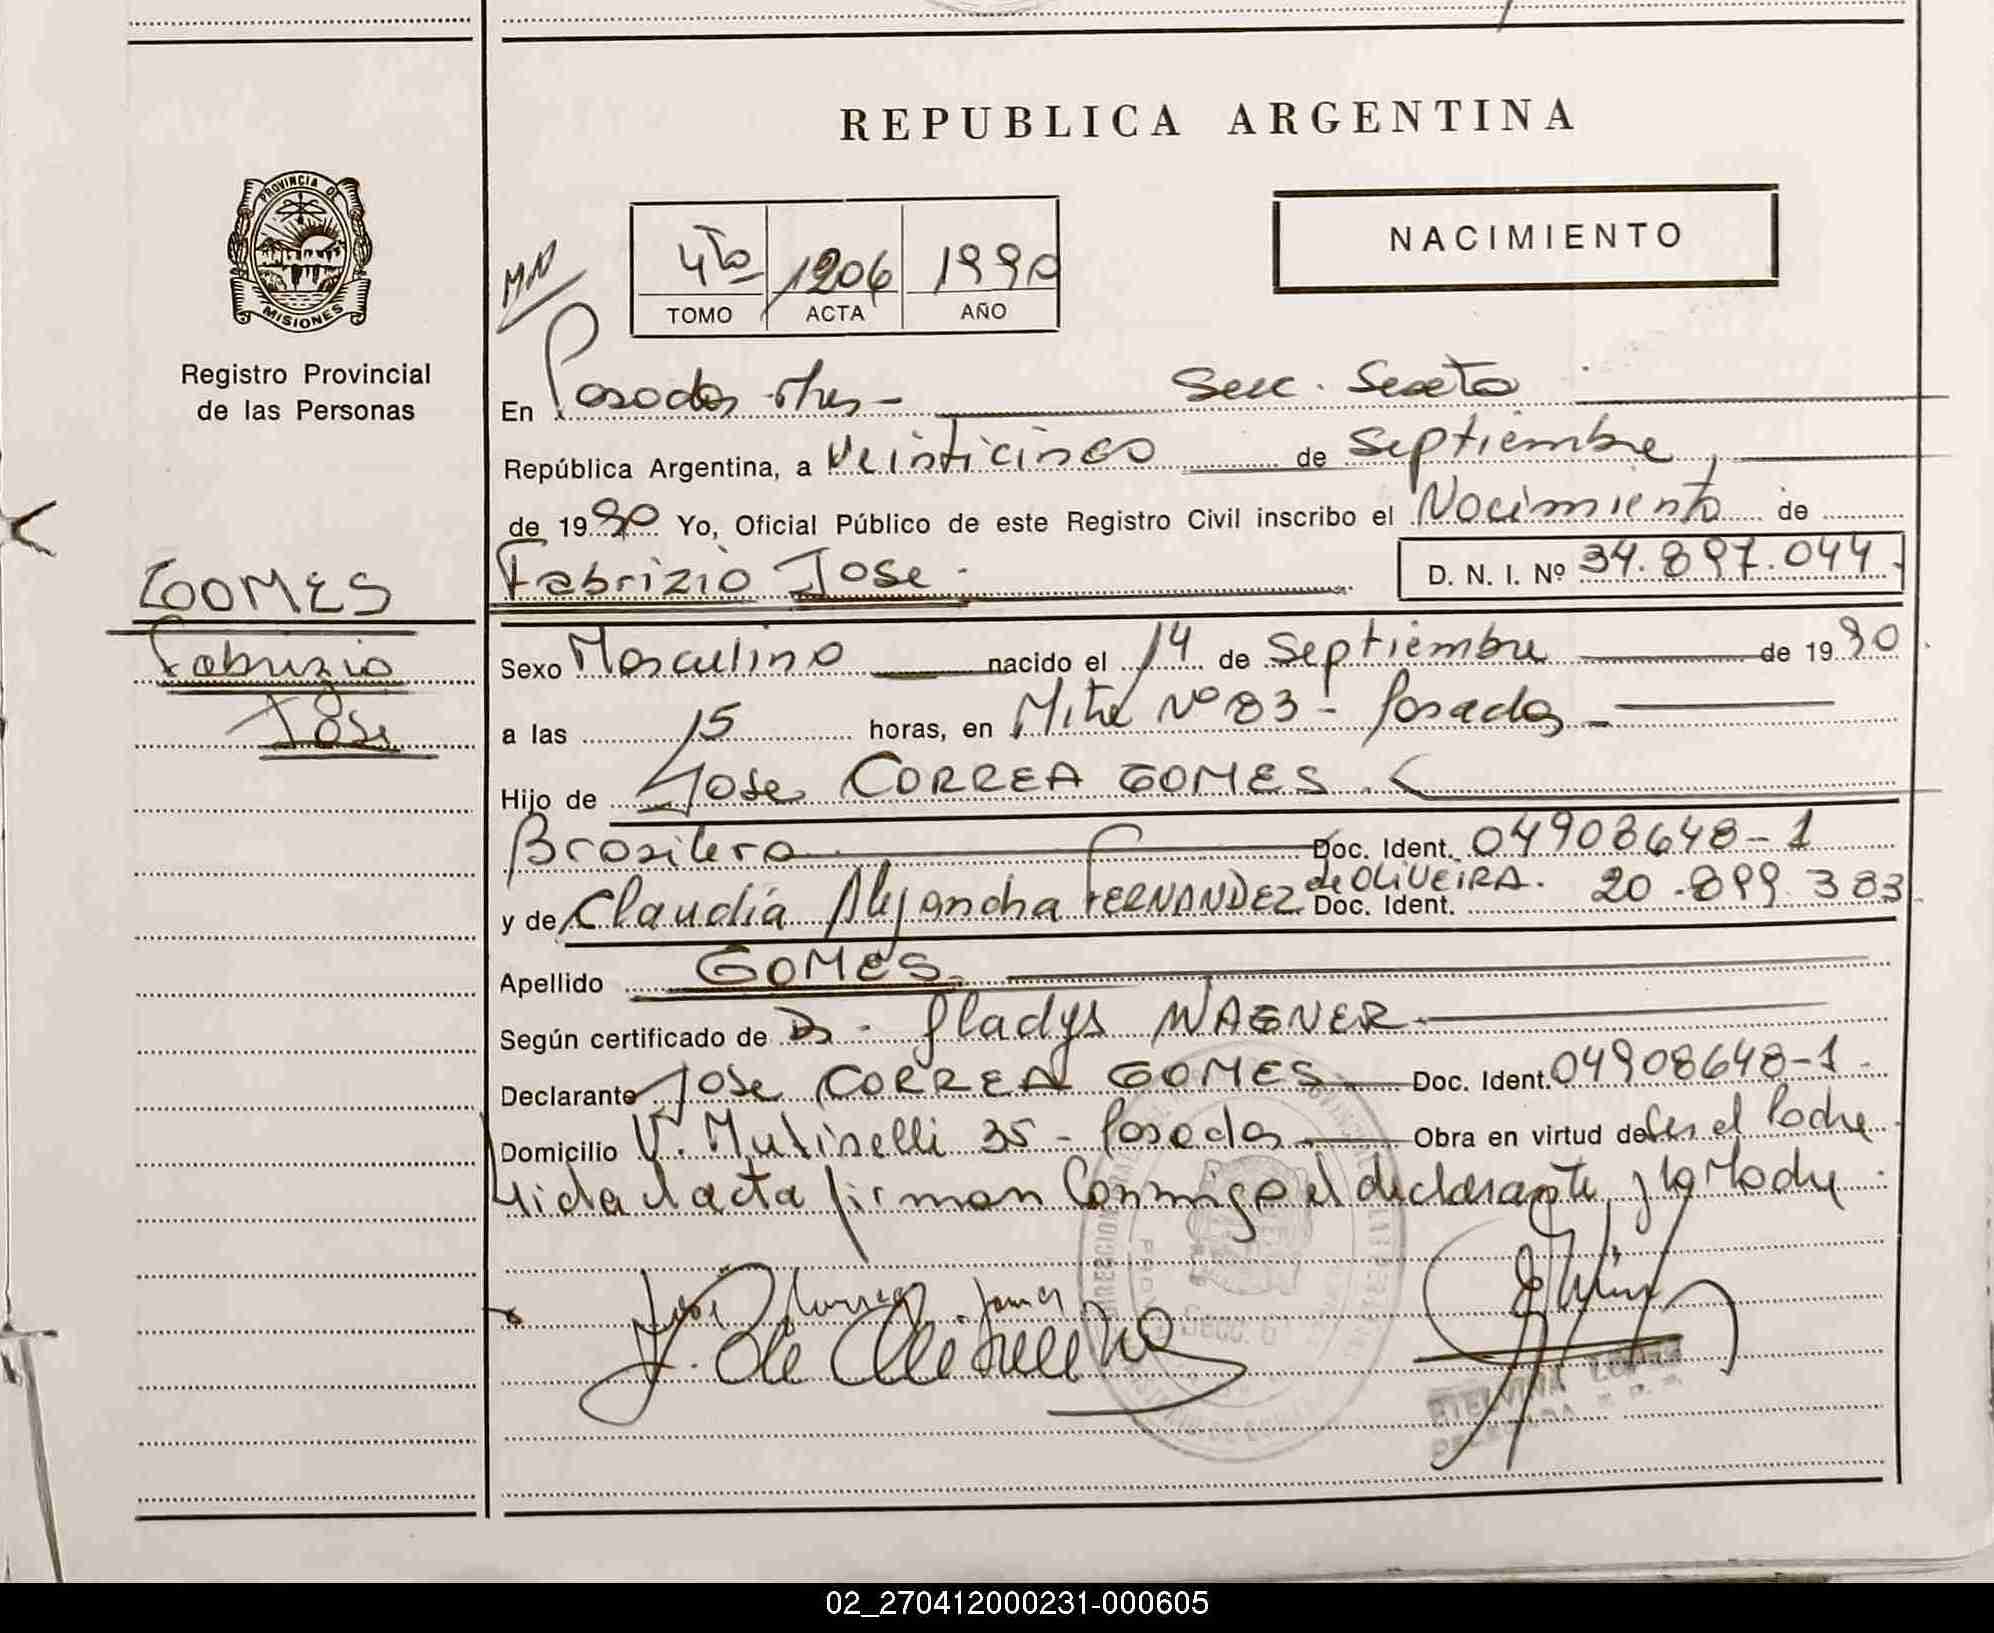 REPUBLICA ARGENTINA
NACIMIENTO
PROVINCIA DE
MISIONES
Registro Provincial
de las Personas
4to 1206 1990
TOMO ACTA AÑO
En Posadas Mnes - Secc. Sexta
República Argentina, a Veinticinco de Septiembre,
de 1990 Yo, Oficial Público de este Registro Civil inscribo el Nacimiento de
Fabrizio Jose. D. N. I. Nº 34.897.044
GOMES
Fabrizio
José
Sexo Masculino nacido el 14 de Septiembre de 1990
a las 15 horas, en Mitre Nº 83 - Posadas -
Hijo de Jose CORREA GOMES.
Brasilero Doc. Ident. 04908648-1
y de Claudia Alejandra FERNANDEZ de OLIVEIRA. Doc. Ident. 20.899.383
Apellido GOMES.
Según certificado de Dr. Gladys WAGNER.
Declarante Jose CORREA GOMES Doc. Ident. 04908648-1.
Domicilio V. Mutinelli 35 - Posadas Obra en virtud de Ser el Padre
Leida el acta firman Conmigo el declarante y la Madre.
Secc. 6
02_270412000231-000605